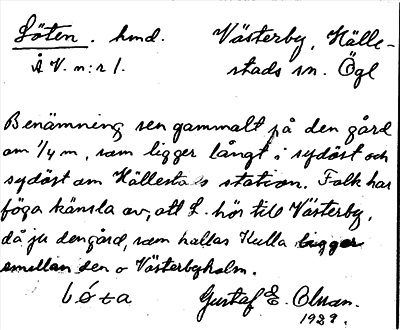 Löten. hmd. Västerby, Hälle-
Å V. n:r 1. stads sn. Ögl
Benämning sen gammalt på den gård
om 1/4 m, som ligger långt i sydöst och
sydöst om Hällestads station. Folk har
föga känsla av, att L. hör till Västerby,
då ju den gård, som kallas Kulla ligger
emellan den o Västerbyholm.
Gustaf E. Olsson.
1929.